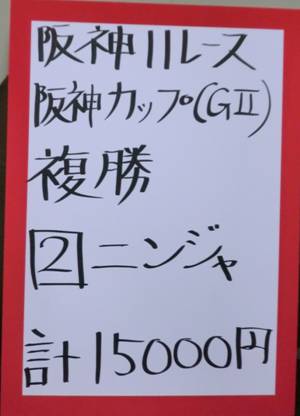 阪神11レース
阪神カップ(GⅡ)
複勝
2ニンジャ
計15000円